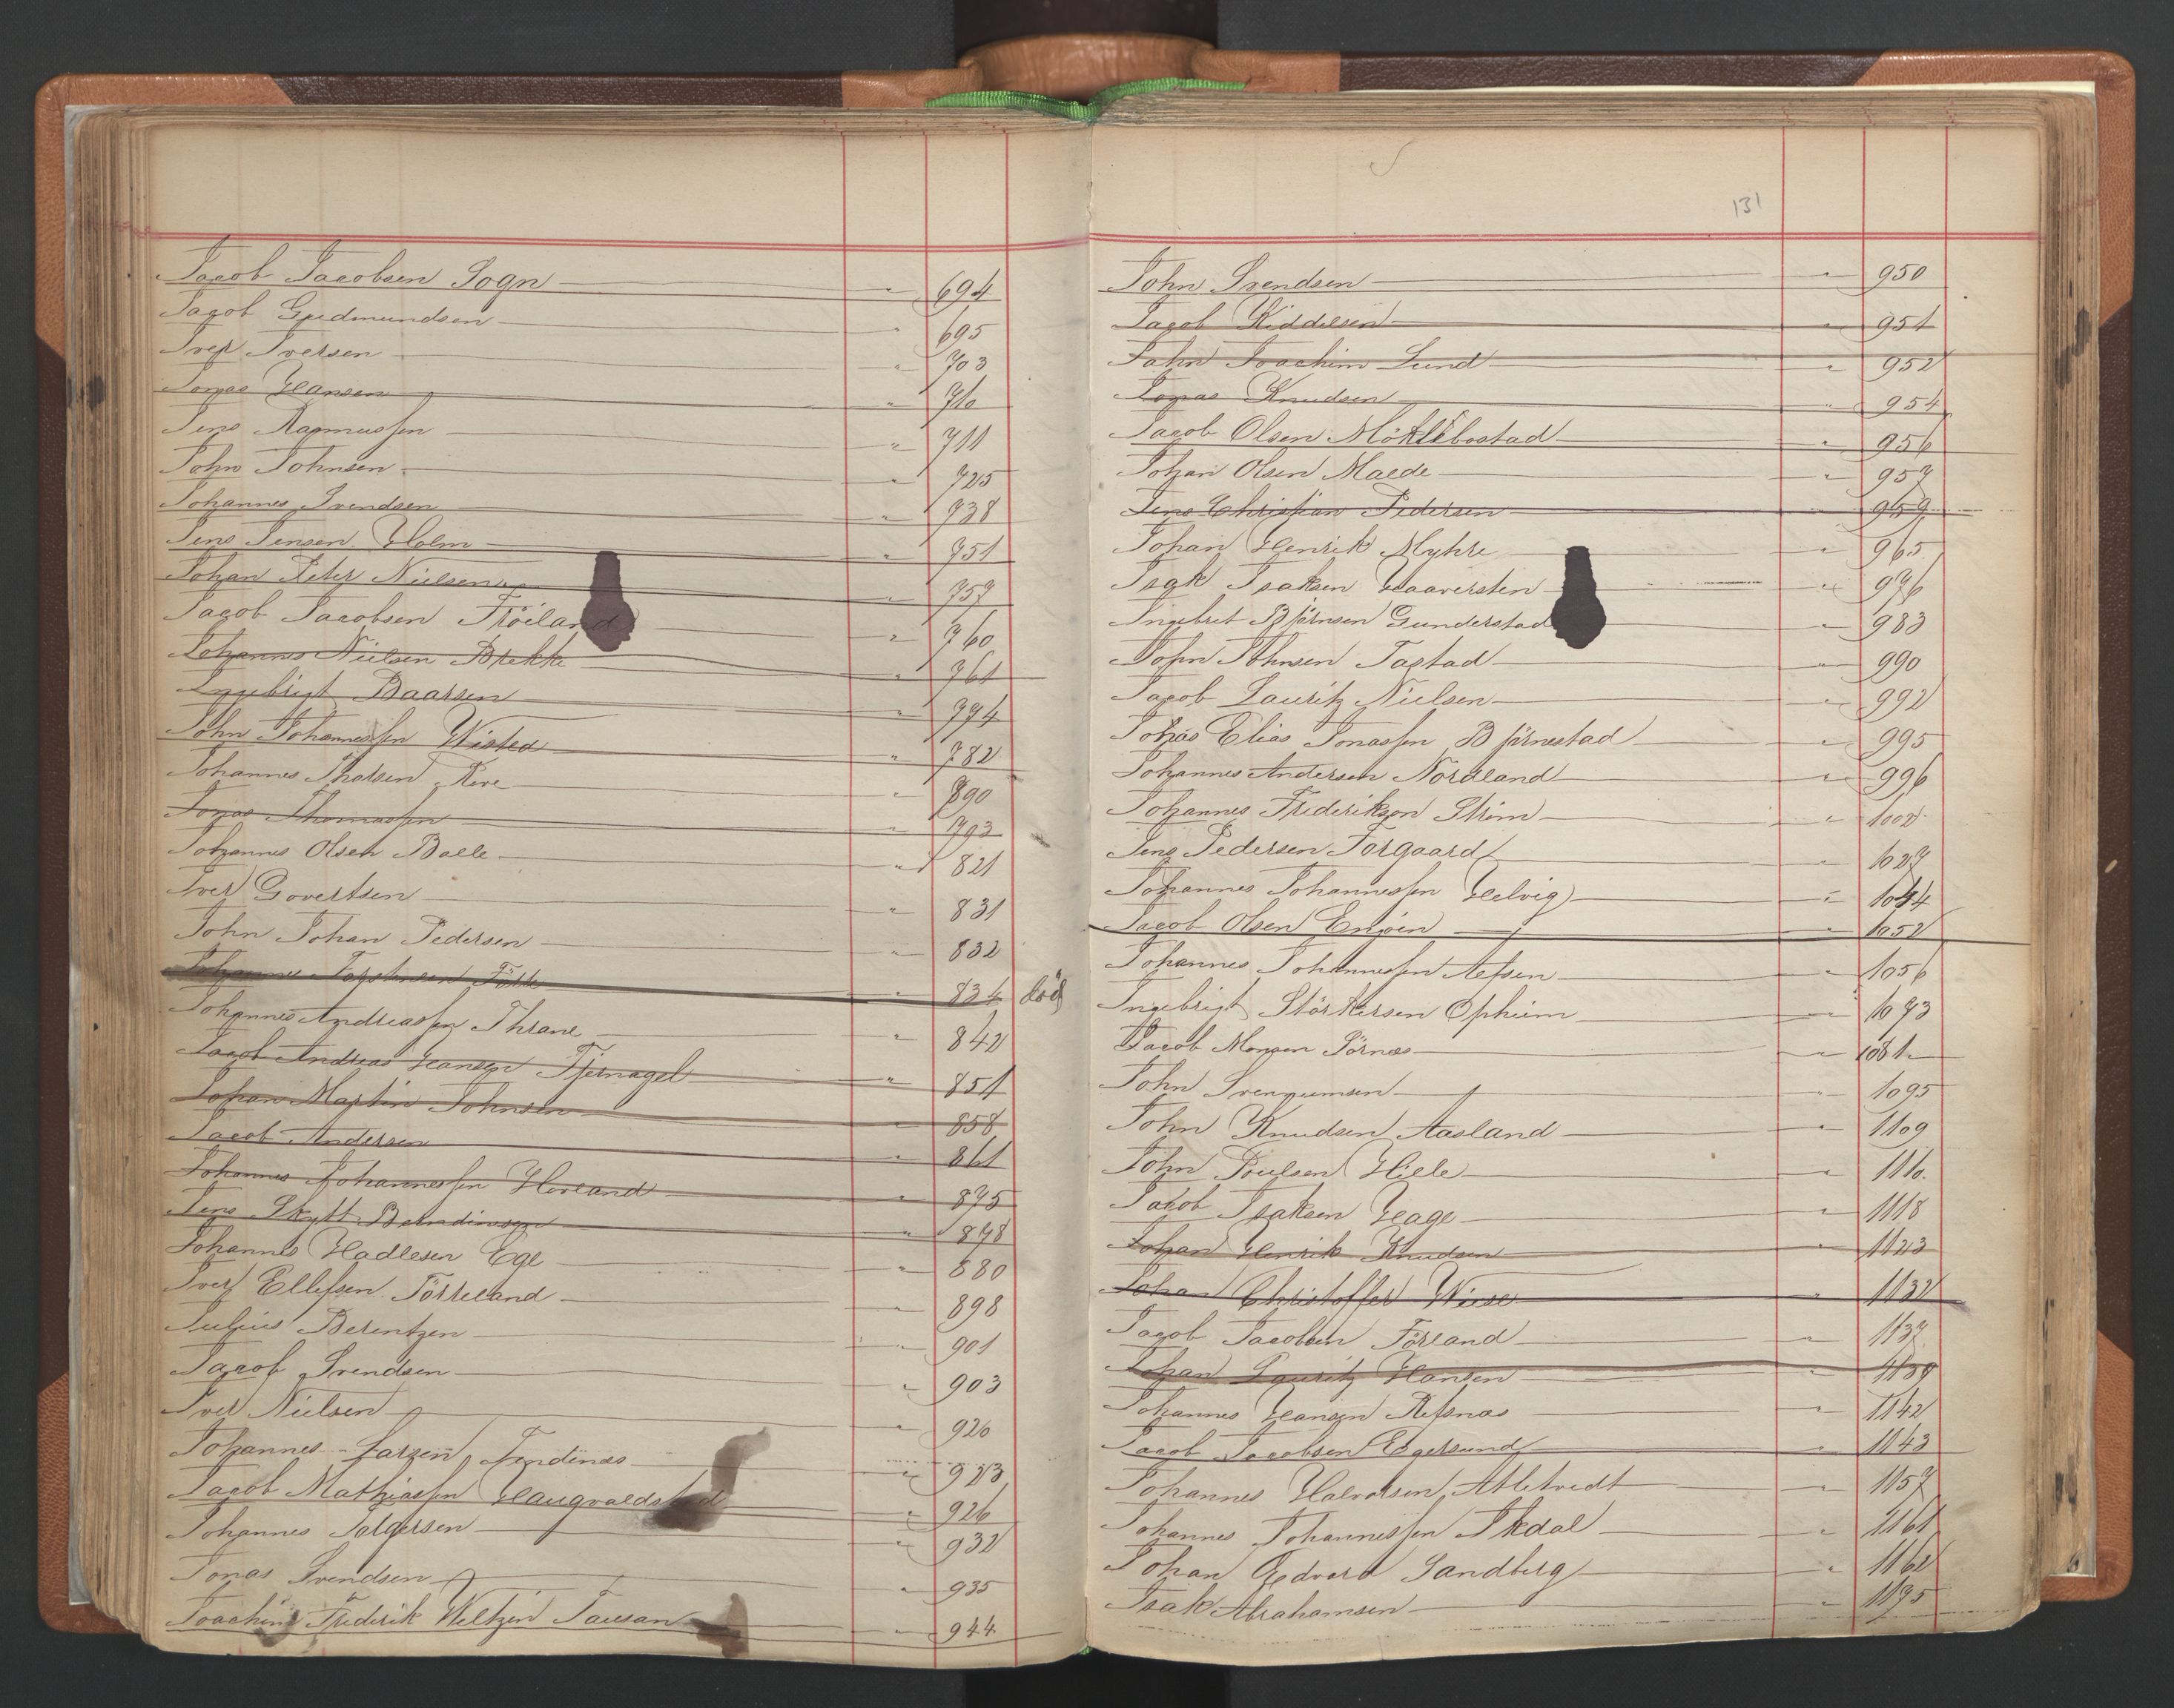 Jacob Jacobsen Sogn " 694
Jacob Gudmundsen " 695
Iver Iversen " 703
Jonas Hansen " 710
Jens Rasmussen " 711
John Johnsen " 725
Johannes Svendsen " 738
Jens Jensen Holm " 751
Johan Peter Nielsen " 757
Jacob Jacobsen Tröiland " 760
Johannes Nielsen Brekke " 761
Ingebrigt Baarsen " 774
John Johannessen Wisted " 782
Johannes Thorsen Reve " 890
Jonas Thomassen " 793
Johannes Olsen Balle " 821
Iver Govertsen " 831
John Johan Pedersen " 832
Johannes Torstensen " 834 död
Johannes Andreassen Thrane " 842
Jacob Andreas Hansen Tjernagel " 851
Johan Martin Johnsen " 858
Jacob Andersen " 861
Johannes Johannessen Hovland " 875
Jens Skytt Berndinsen " 878
Johannes Hadlesen Ege " 880
Iver Ellefsen Törreland " 898
Julius Berentzen " 901
Jacob Svendsen " 903
Iver Nielsen " 920
Johannes Larsen Tendenæs " 923
Jacob Mathiassen Haugvaldstad " 926
Johannes Salgersen " 932
Jonas Svendsen " 935
Joachim Frederik Weltzin Tausan " 944
131
John Svendsen " 950
Jacob Kiddelsen " 951
John Joachim Lund " 952
Jonas Knudsen " 954
Jacob Olsen Möklebostad " 956
Johan Olsen Malde " 957
Jens Christian Pedersen 959
Johan Henrik Myhre " 965
Isak Isaksen Haaversten " 976
Ingebret Björnsen Gunderstad 983
John Johnsen Tastad " 990
Jacob Lauritz Nielsen " 992
Johas Elias Jonassen Björnestad " 995
Johannes Andersen Nordland " 996
Johannes Frederikson Ström " 1002
Jens Pedersen Torgaard " 1027
Johannes Johannessen Helvig " 1044
Jacob Olsen Engen " 1052
Johannes Johannessen " 1056
Ingebrigt Störkersen Opheim " 1073
Jacob Monsen Sörnæs " 1081
John Svenumsen " 1095
John Knudsen Aasland " 1109
John Poulsen Hille " 1110
Jacob Isaksen Hage " 1118
Johan Henrik Knudsen " 1123
Johan Christoffer Wiese " 1132
Jacob Jacobsen Förland " 1137
Johan Lauritz Hansen " 1139
Johannes Hansen Refsnæs " 1142
Jacob Jacobsen Egersund " 1143
Johannes Halvorsen Alletvedt " 1157
Johannes Johannessen Ikdal " 1161
Johan Edvard Sandberg " 1162
Isak Abrahamsen " 1175